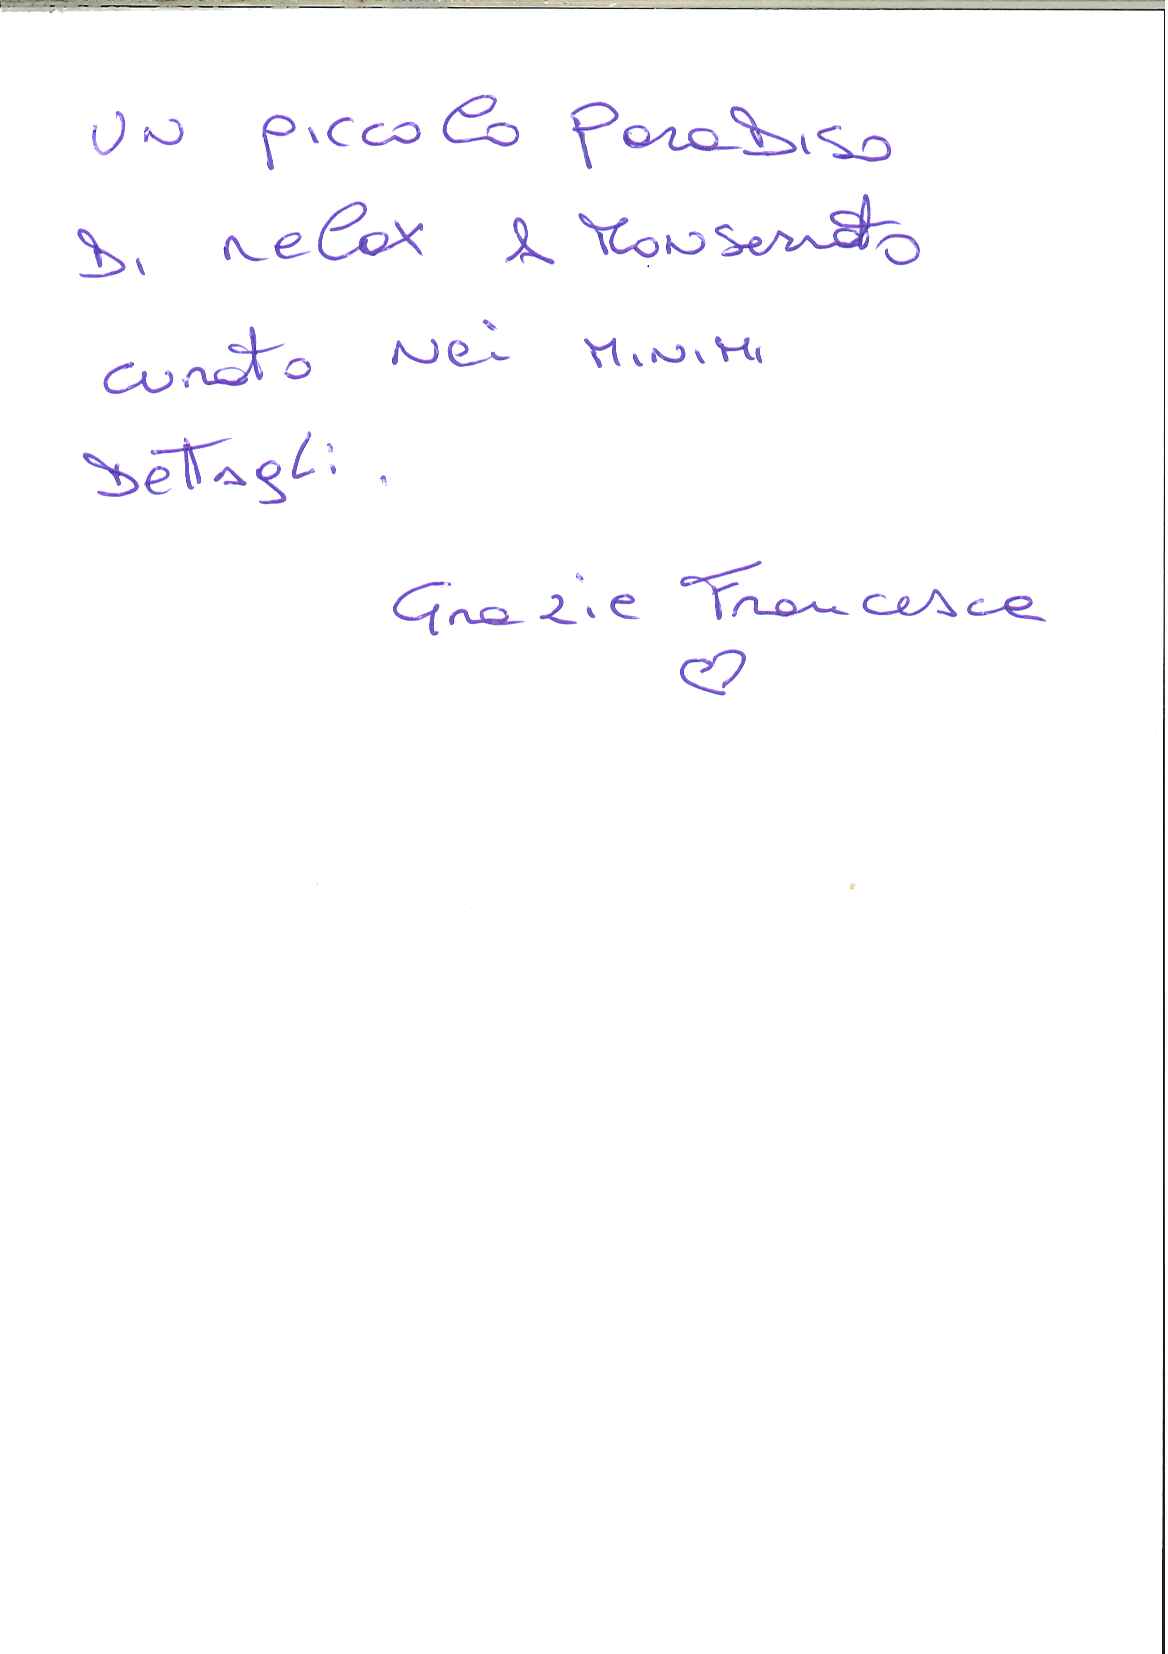 Un piccolo Paradiso
Di relax a Monserrato
curato Nei MiNiMi
Dettagli.
Grazie Francesca
♡